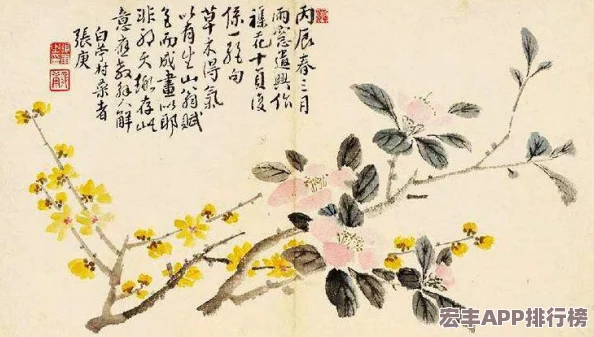 丙辰春三月
雨窗遣興作
襍花十頁復
係一絕句
草木得氣
以有生山翁賦
色而成畫以耶
非耶存此
意應教解人解
白苧村桑者
張庚
宏丰APP排行榜